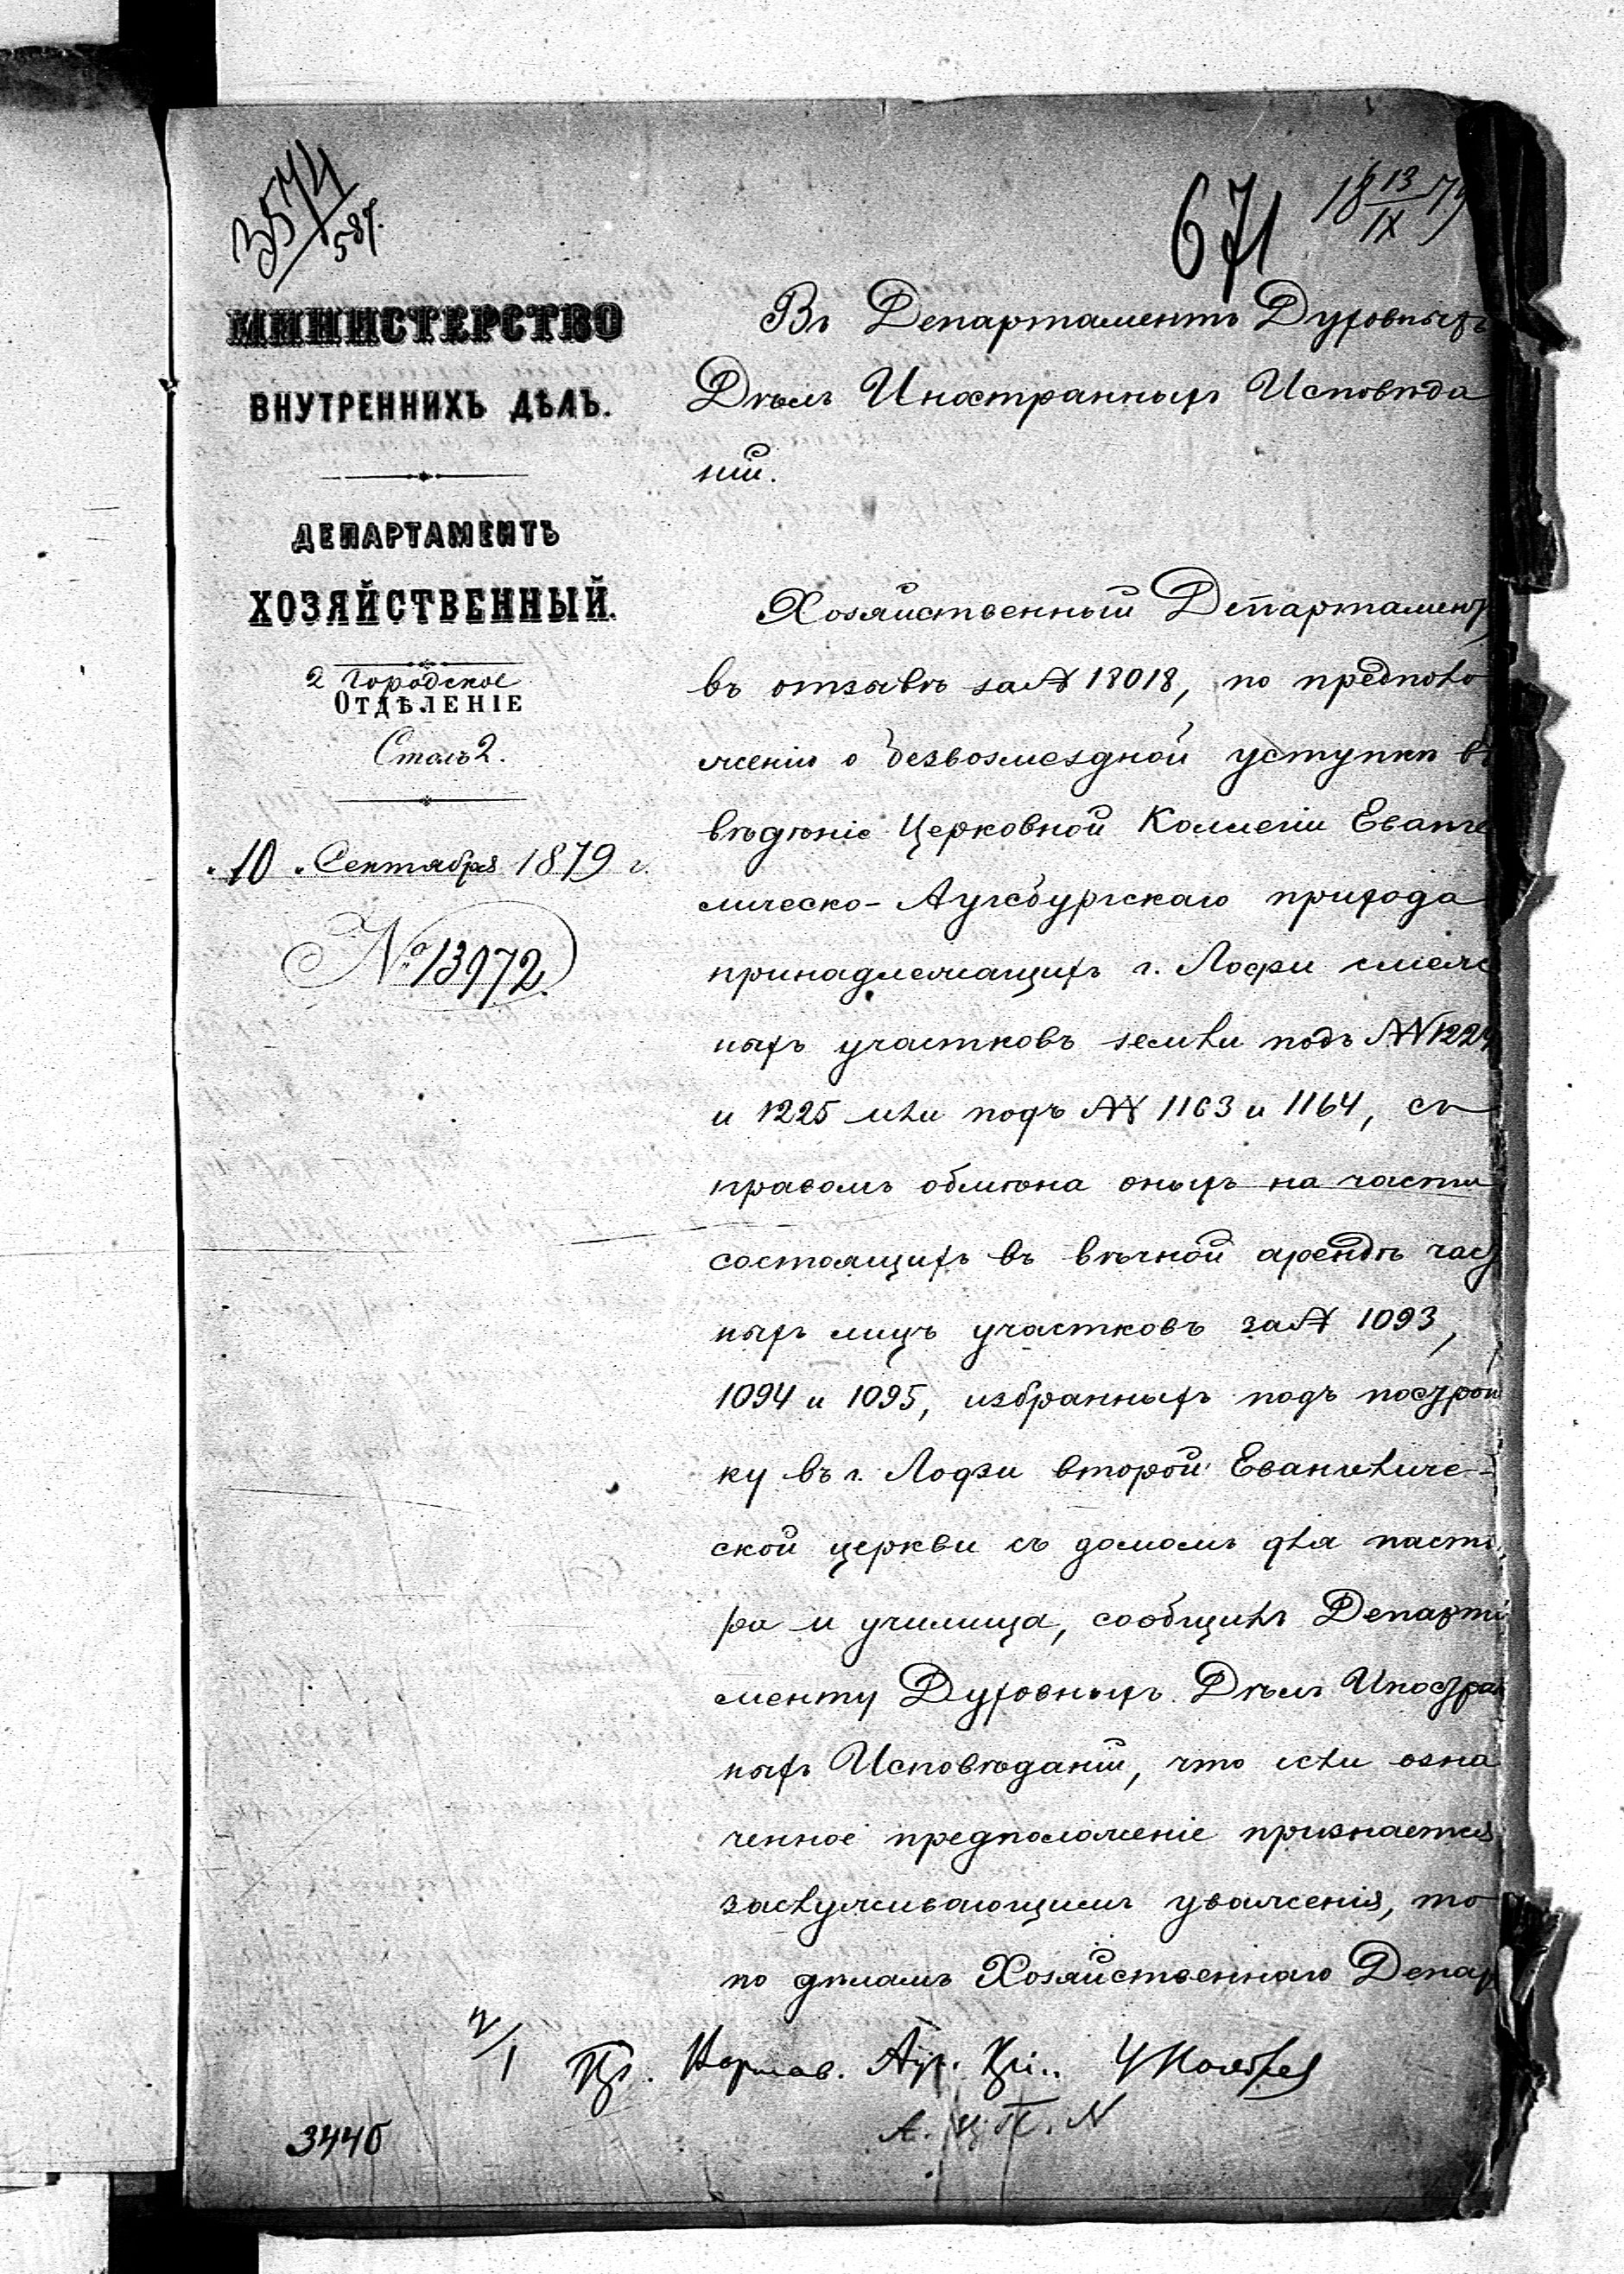 3574
587.
671
18 13/IX 79
МИНИСТЕРСТВО
ВНУТРЕННИХЪ ДѢЛЪ.
ДЕПАРТАМЕНТЪ
ХОЗЯЙСТВЕННЫЙ.
2 Городское
ОТДѢЛЕНІЕ
Столъ 2.
"10" Сентября 1879 г.
№ 13972.
Въ Департаментъ Духовныхъ
Дѣлъ Иностранныхъ Исповѣда
ній.
Хозяйственный Департаментъ
въ отзывѣ за № 18018, по предполо
женію о безвозмездной уступкѣ въ
вѣдѣніе Церковной Коллегіи Еванге
лическо-Аугсбургскаго прихода
принадлежащихъ г. Лодзи смеж
ныхъ участковъ земли подъ №№ 1224
и 1225 или подъ №№ 1163 и 1164, съ
правомъ обмѣна оныхъ на части
состоящихъ въ вѣчной арендѣ част
ныхъ лицъ участковъ за № 1093,
1094 и 1095, избранныхъ подъ построй
ку въ г. Лодзи второй Евангеличе-
ской церкви съ домомъ для пасто
ра и училища, сообщилъ Департа
менту Духовныхъ Дѣлъ Иностран
ныхъ Исповѣданій, что если озна
ченное предположеніе признается
заслуживающимъ уваженія, то
по дѣламъ Хозяйственнаго Депар
2/1
Варшав.
4 Ноября
3446